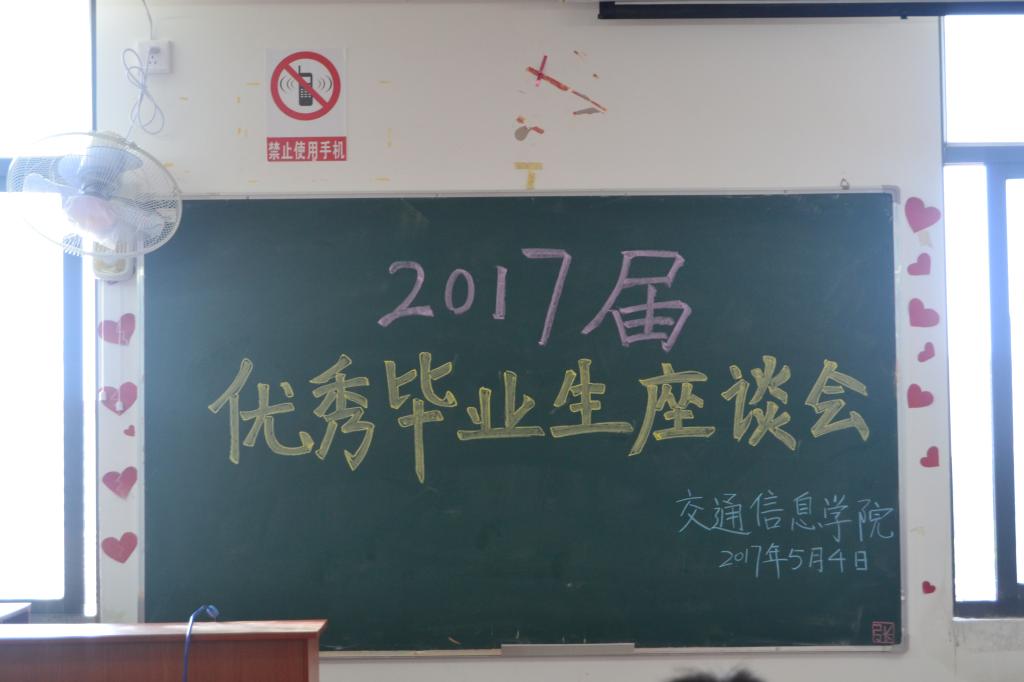 禁止使用手机
2017届
优秀毕业生座谈会
交通信息学院
2017年5月4日